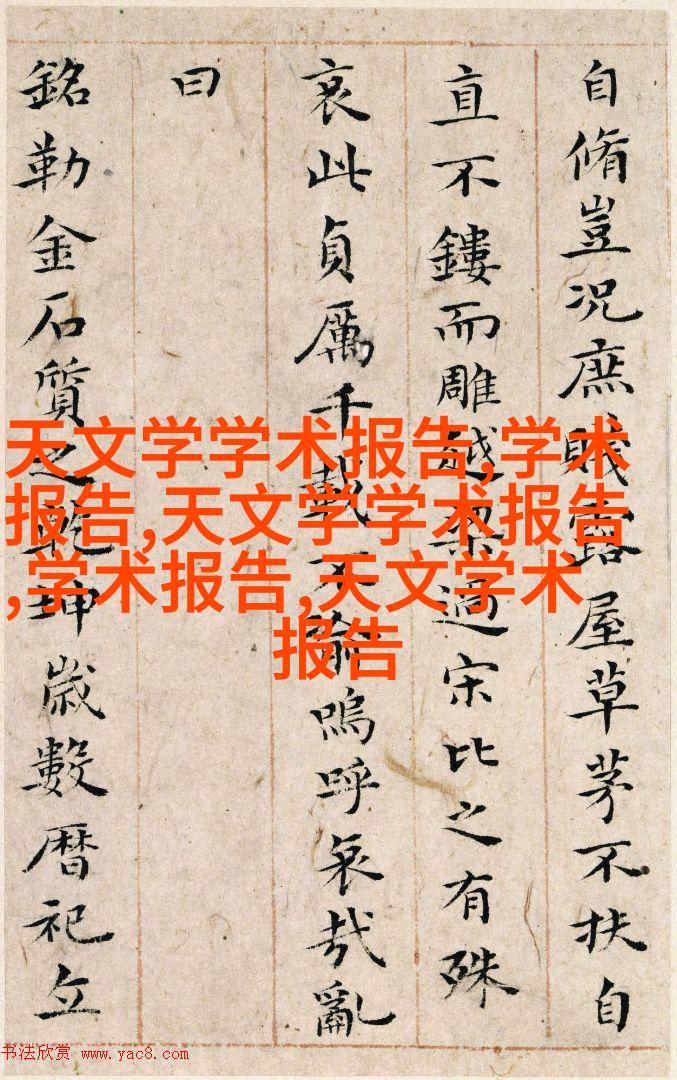 自脩豈况庶賤露屋草茅不扶自
直不鏤而雕越梁過宋比之有殊
哀此貞厲千載不渝嗚呼哀哉亂
曰
銘勒金石質之乾坤歲數曆祀立
天文学学术报告,学术
报告,天文学学术报告
,学术报告,天文学术
报告
书法欣赏 www.yac8.com